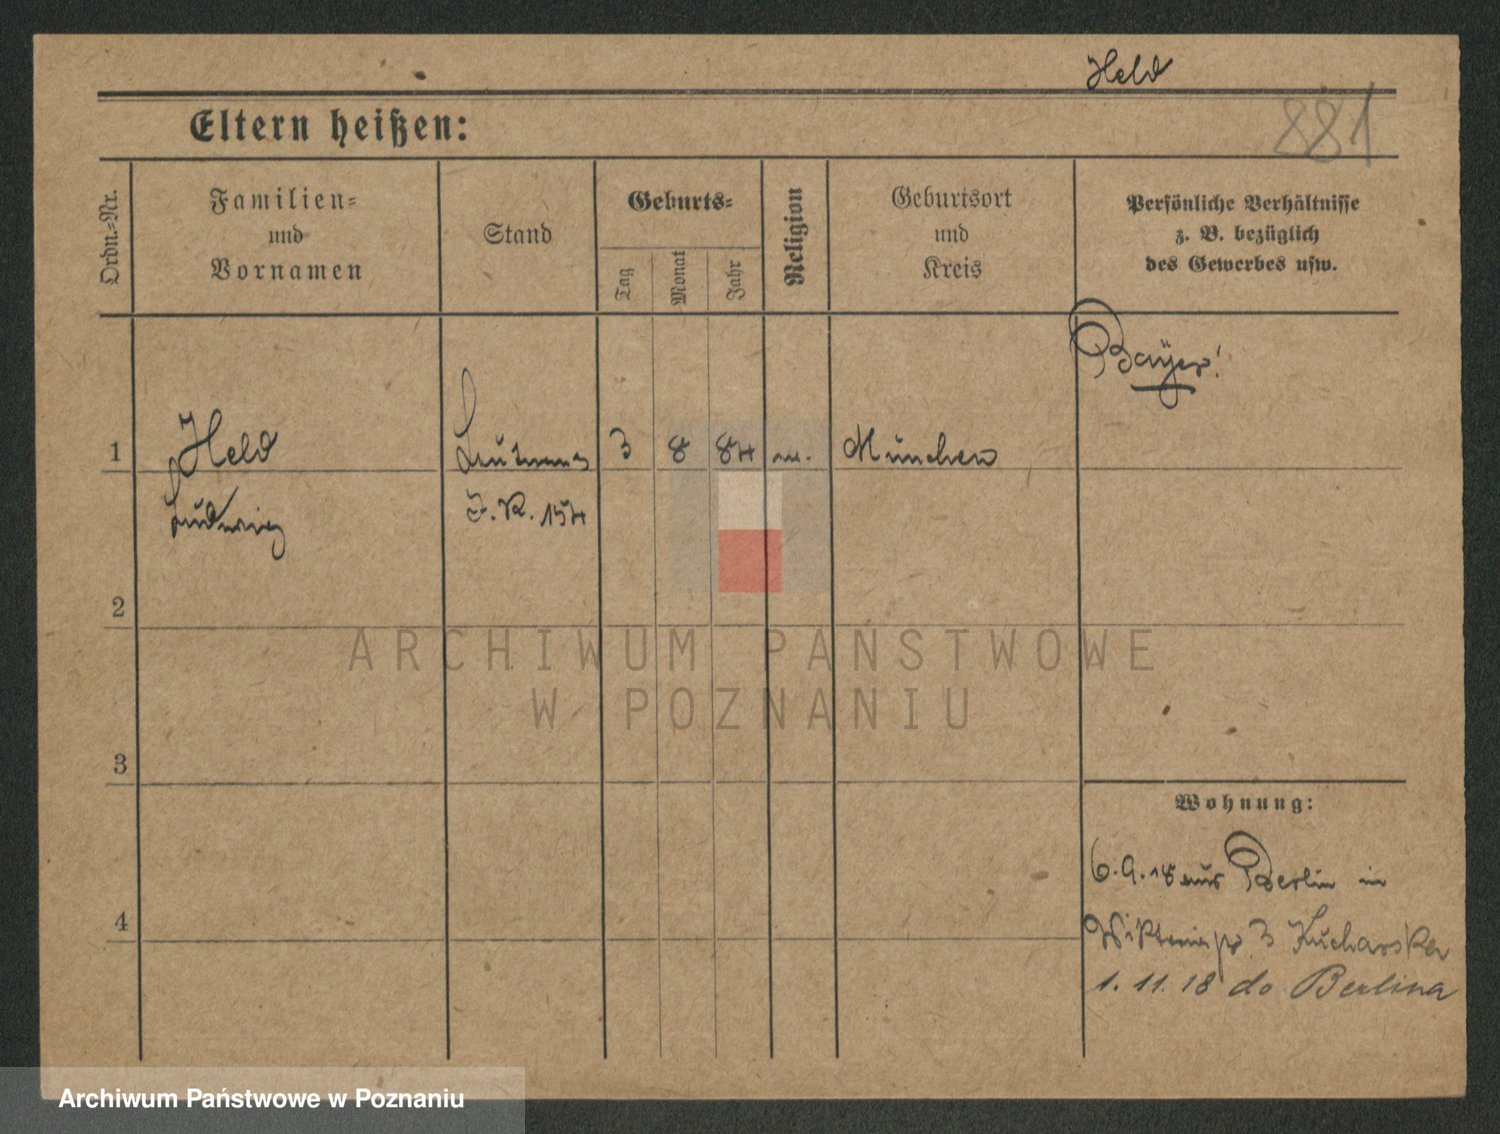 Held
881
Eltern heißen:
Ordn.-Nr.
Familien-
und
Vornamen
Stand
Geburts-
Tag
Monat
Jahr
Religion
Geburtsort
und
Kreis
Persönliche Verhältnisse
z. B. bezüglich
des Gewerbes usw.
Bayer!
1
Held
Leutnant
3
8
84
m.
München
Ludwig
J. R. 154
2
ARCHIWUM PAŃSTWOWE
W POZNANIU
3
Wohnung:
6.9.18 aus Berlin in
Viktoriastr. 3 Kucharska
4
1.11.18 do Berlina
Archiwum Państwowe w Poznaniu